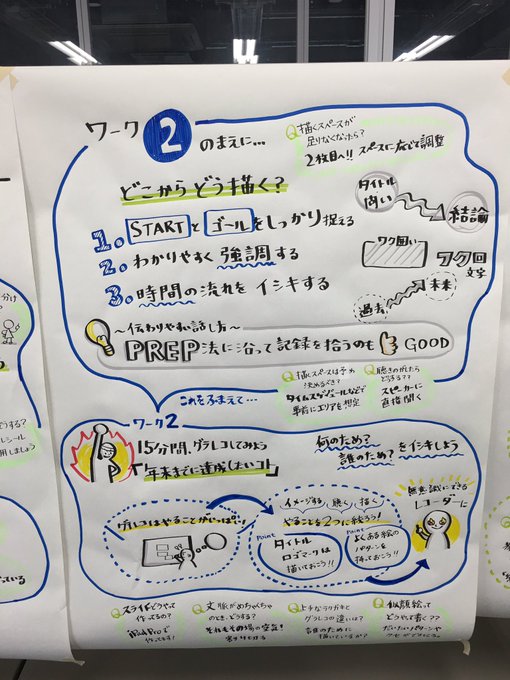 ワーク2のまえに…
Q 描くスペースが
足りなくなったら?
2枚目へ!! スペースに応じて調整
どこからどう描く?
1. STARTとゴールをしっかり捉える
2. わかりやすく強調する
3. 時間の流れをイシキする
タイトル
問い
結論
ワク囲い
ワク囲
文字
過去
未来
〜伝わりやすい話し方〜
PREP法に沿って記録を拾うのも GOOD
Q 描くスペースは予め
決めるべき?
タイムスケジュールなどで
事前にエリアを想定
Q 聴きのがしたら
どうする??
スピーカーに
直接聞く
これをふまえて…
ワーク2
15分間、グラレコしてみよう
「年末までに達成したいコト」
何のため?
誰のため?をイシキしよう
グラレコはやることがいっぱい!!
イメージする、聴く、描く
やることを2つに絞ろう!
Point
タイトル
ロゴマークは
描いておこう!!
Point
よくある絵の
パターンを
持っておこう!!
無意識にできる
レコーダーに
Q スライドどうやって
作ってるの?
iPad Proで
作ってます!
Q 文脈がめちゃくちゃ
のとき、どうする?
それもその場の空気!
割りきる
Q 上手なラクガキと
グラレコの違いは?
誰のために
描いているか?
Q 似顔絵って
どうやって書く??
だいたいパターンや